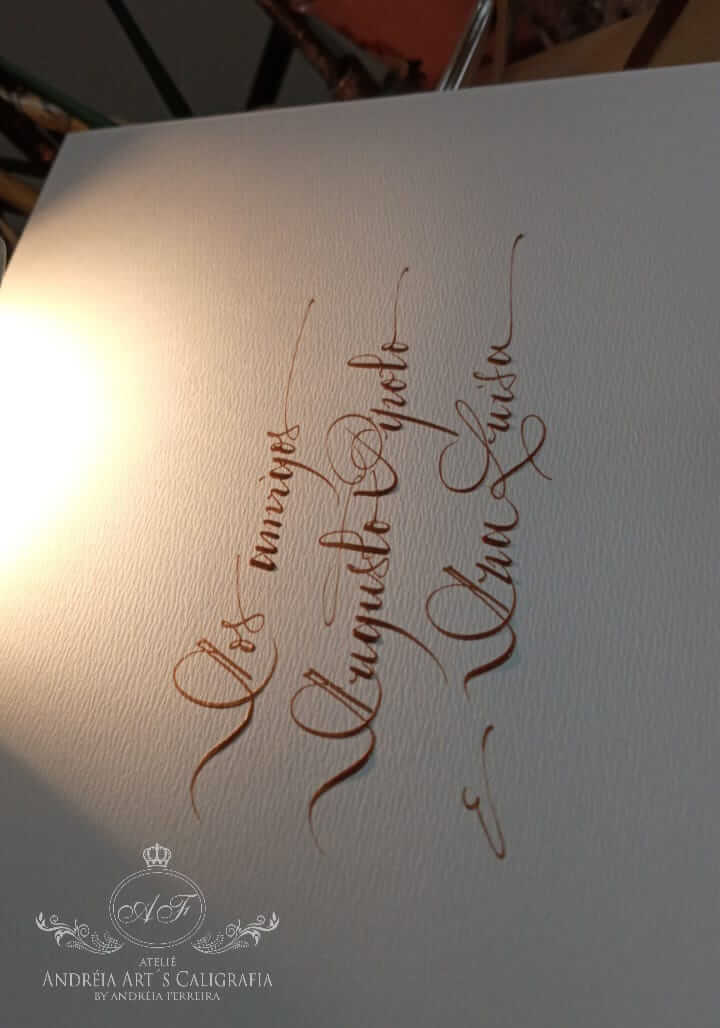 Aos amigos
Augusto Apolo
e Ana Luisa
AF
ATELIÊ
ANDRÉIA ART´S CALIGRAFIA
BY ANDRÉIA FERREIRA